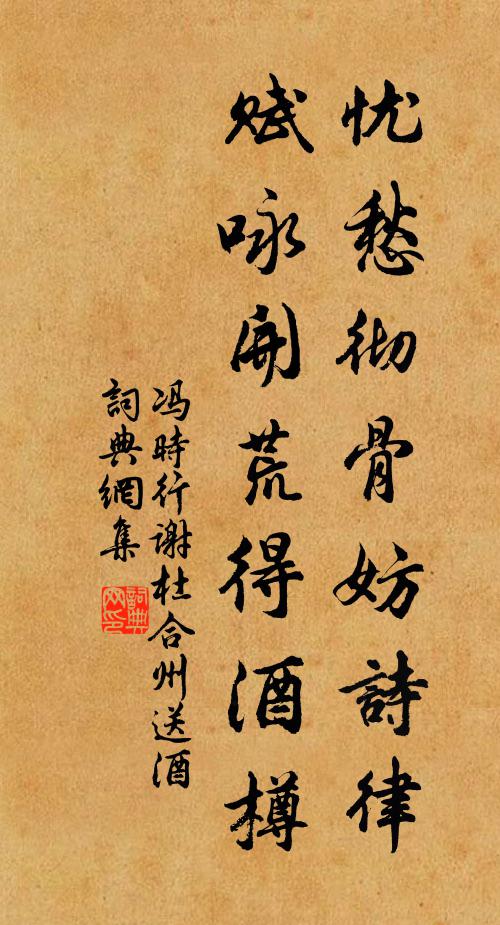 忧愁彻骨妨詩律
赋咏開荒得酒樽
冯時行谢杜合州送酒
詞典網集
詞典网印